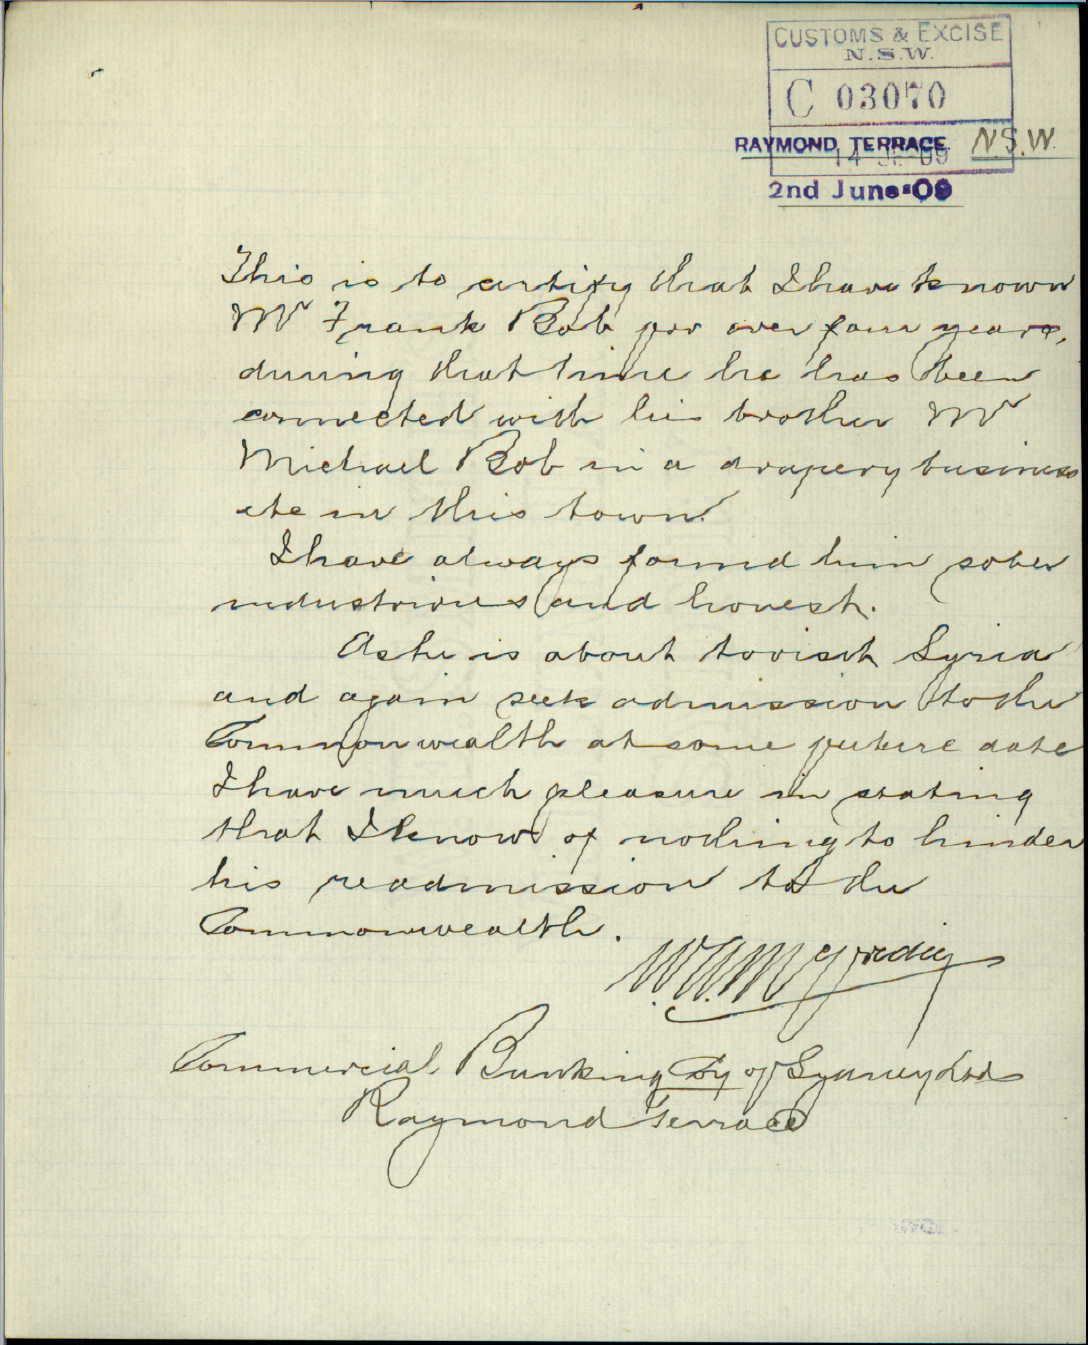 CUSTOMS & EXCISE
N.S.W.
C 03070
RAYMOND TERRACE. N.S.W.
14 JE 09
2nd June 09
This is to certify that I have known
Mr Frank Bob for over four years,
during that time he has been
connected with his brother Mr
Michael Bob in a drapery business
etc in this town.
I have always found him sober
industrious and honest.
As he is about to visit Syria
and again seek admission to the
Commonwealth at some future date
I have much pleasure in stating
that I know of nothing to hinder
his readmission to the
Commonwealth.
Commercial Banking Coy of Sydney Ltd
Raymond Terrace